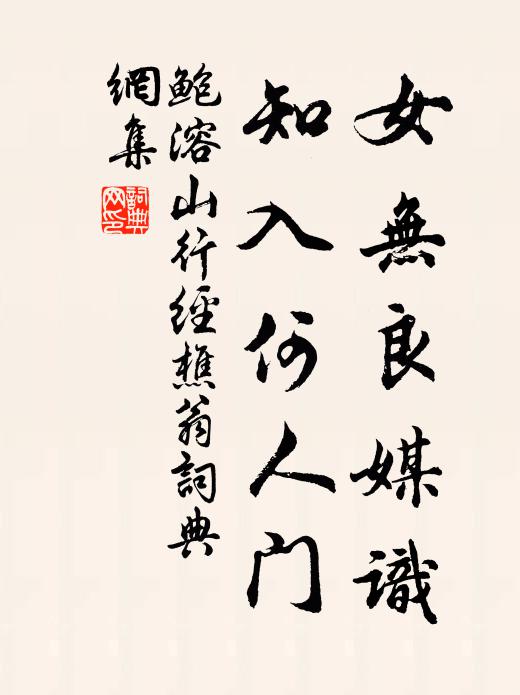 女無良媒識
知入何人門
鮑溶山行經樵翁詞典
網集
詞典網印